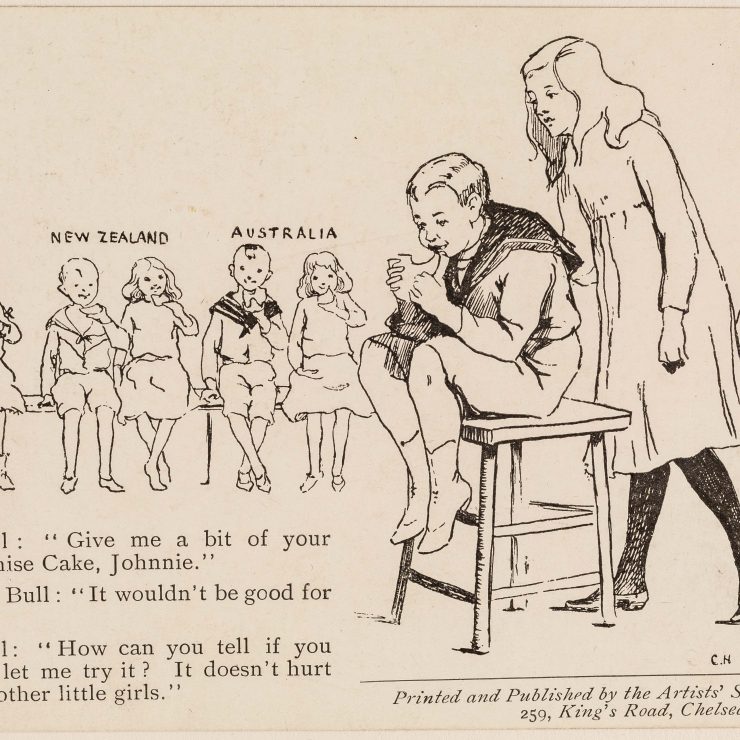 NEW ZEALAND
AUSTRALIA
l: "Give me a bit of your
nise Cake, Johnnie."
Bull: "It wouldn't be good for
l: "How can you tell if you
let me try it? It doesn't hurt
other little girls."
C.H
Printed and Published by the Artists' S
259, King's Road, Chelsea